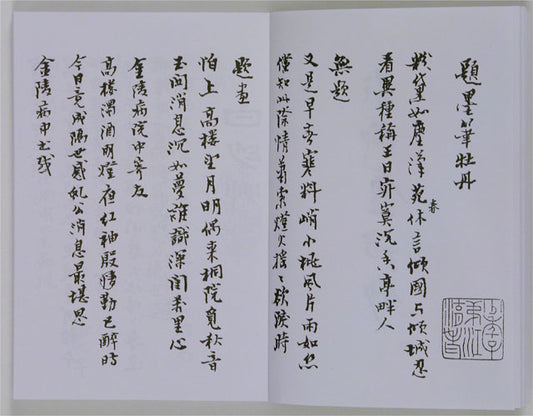 題墨筆牡丹
粉黛如塵漢苑春休言傾國与傾城忍
看異種稱王日寂寞沉香亭畔人
無題
又是早春寒料峭小桃風片雨如絲
僅知此際情蕭索燈火搖々欲時
題畫
怕上高樓望月明偶來桐院覓秋音
玉関消息沉如夢誰識深閨萬里心
金陵病院中寄友
高樓酒明燈夜紅袖殷勤已醉時
今日竟成隔世感公消息最堪思
金陵病中